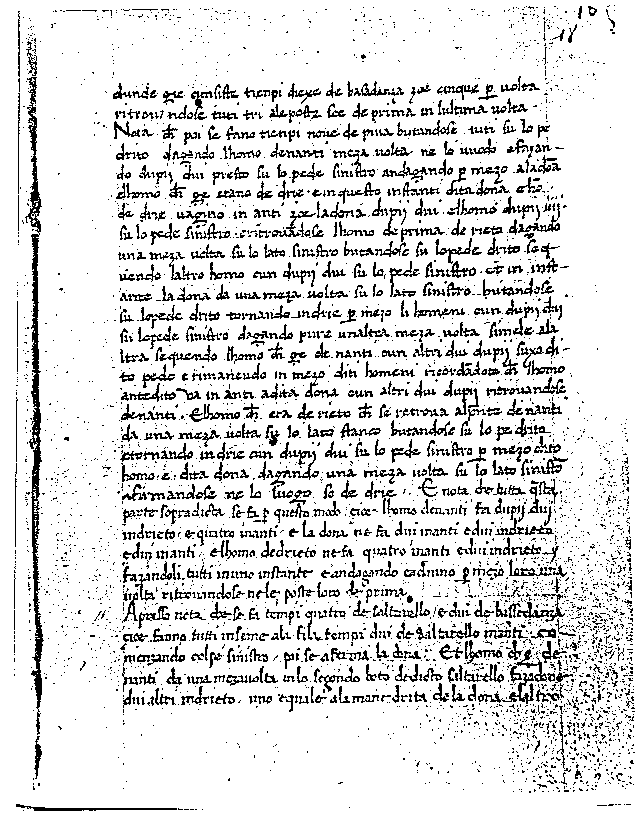 18
dunde che consiste tienpi diexe de basadanza zoe cinque p volta
ritrovandose tuti tri ale poste soe de prima in lultima volta
Nota che poi se fano tienpi nove de piva butandose tuti su lo pe
drito dagando lhomo denanti meza volta ne lo vuodo e fazan-
do dupij dui presto su lo pede sinistro andagando p mezo a la dona
elhomo che ge erano de drie e in questo instanti dita dona e lho
de drie vagino in anti zoe la dona dupij dui elhomo dupij iiij
su lo pede sinistro e ritrovadose lhomo de prima de rieto dagando
una meza volta su lo lato sinistro butandose su lo pede drito seq-
uendo laltro homo cun dupij dui su lo pede sinistro et in inst-
ante la dona da una meza volta su lo lato sinistro butandose
su lo pede drito tornando indrie p mezo li homeni cun dupij dui
su lo pede sinistro dagando pure unaltra meza volta simele ala
ltra sequendo lhomo che ge de nanti cun altri dui dupij suxo di-
to pede e rimanendo in mezo diti homeni ricordadote che lhomo
antedito va in anti a dita dona cun altri dui dupij ritrovandose
denanti. Elhomo che era de rieto che se retrova al presente denanti
da una meza volta su lo lato stanco butandose su lo pe drito
e tornando indrie cun dupij dui su lo pede sinistro p mezo dito
homo e dita dona dagando una meza volta su lo lato sinistro
afirmandose ne lo luogo so de drie. E nota che tutta questa
parte sopradicta se fa p questo modo cioe lhomo denanti fa dupij dui
indrieto e quatro inanti e la dona ne fa dui inanti e dui indrieto
e dui inanti e lhomo dedrieto ne fa quatro inanti e dui indrieto
fazandoli tutti in uno instante e andagando cadauno p mezo loro una
volta ritrovandose ne le poste loro de prima
Apresso nota che se fa tempi quatro de saltarello e dui de bassadanza
cioe fanno tutti inseme ala fila tempi dui de saltarello inanti co-
menzando col pe sinistro poi se aferma la dona. Et lhomo che e de-
nanti da una meza volta in lo segondo boto de dicto saltarello fazadone
dui altri indrieto uno equale a la mane drita de la dona e laltro